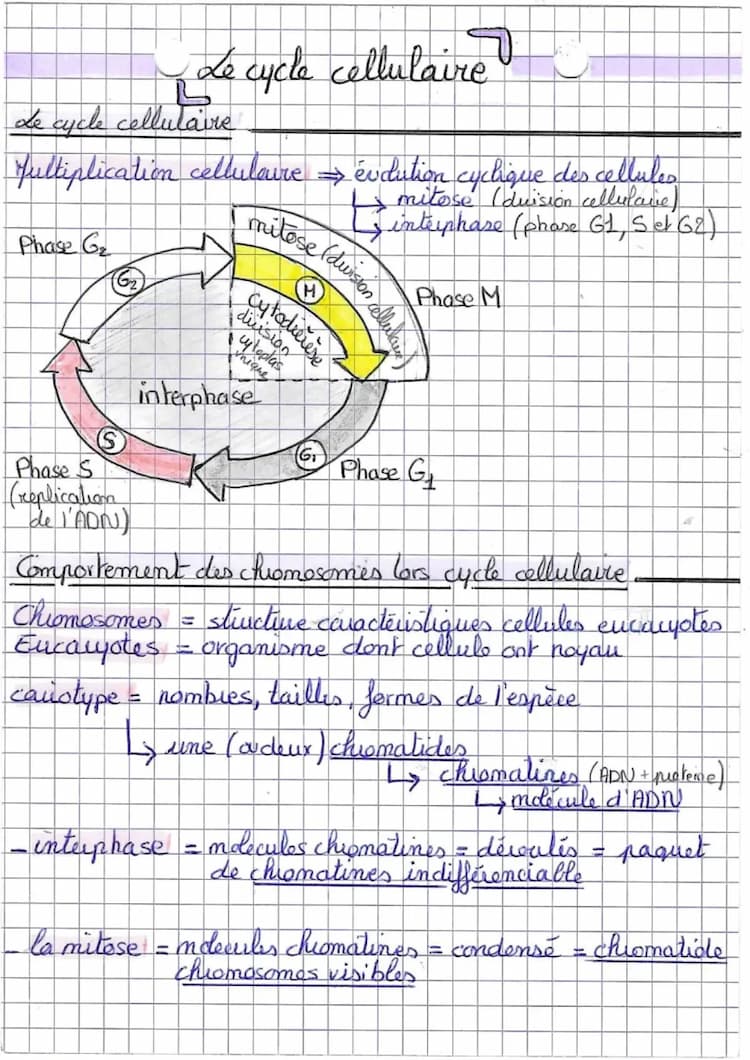 Le cycle cellulaire
Le cycle cellulaire
Multiplication cellulaire ⇒ évolution cyclique des cellules
↳ mitose (division cellulaire)
↳ interphase (phase G1, S et G2)
Phase G2
G2
mitose (division cellulaire)
M
Phase M
Cytodiérèse
division
cytoplas
mique
interphase
S
Phase S
(replication
de l'ADN)
G1
Phase G1
Comportement des chromosomes lors cycle cellulaire
Chromosomes = structure caractéristiques cellules eucaryotes
Eucaryotes = organisme dont cellule ont noyau
cariotype = nombres, tailles, formes de l'espèce
↳ une (ou deux) chromatides
↳ chromatines (ADN + proteine)
↳ molécule d'ADN
- interphase = molécules chromatines = déroulés = paquet
de chromatines indifférenciable
- la mitose = molecules chromatines = condensé = chromatide
chromosomes visibles